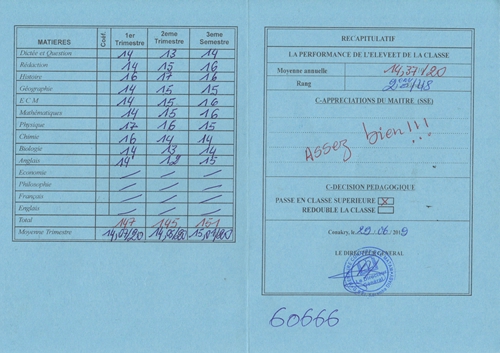 MATIERES Coéf. 1er Trimestre 2eme Trimestre 3eme Semestre
Dictée et Question 14 13 14
Rédaction 14 15 16
Histoire 16 17 16
Géographie 14 15 15
E C M 14 15 16
Mathématiques 14 15 16
Physique 17 16 15
Chimie 16 14 14
Biologie 14 13 14
Anglais 14 12 15
Economie / / /
Philosophie / / /
Français / / /
Englais / / /
Total 147 145 151
Moyenne Trimestre
RECAPITULATIF
LA PERFORMANCE DE L'ELEVEET DE LA CLASSE
Moyenne annuelle 14,37/20
Rang /48
C-APPRECIATIONS DU MAITRE (SSE)
Assez bien!!!
C-DECISION PEDAGOGIQUE
PASSE EN CLASSE SUPERIEURE X
REDOUBLE LA CLASSE
Conakry, le 29/06/2019
LE DIRECTEUR GENERAL
60666